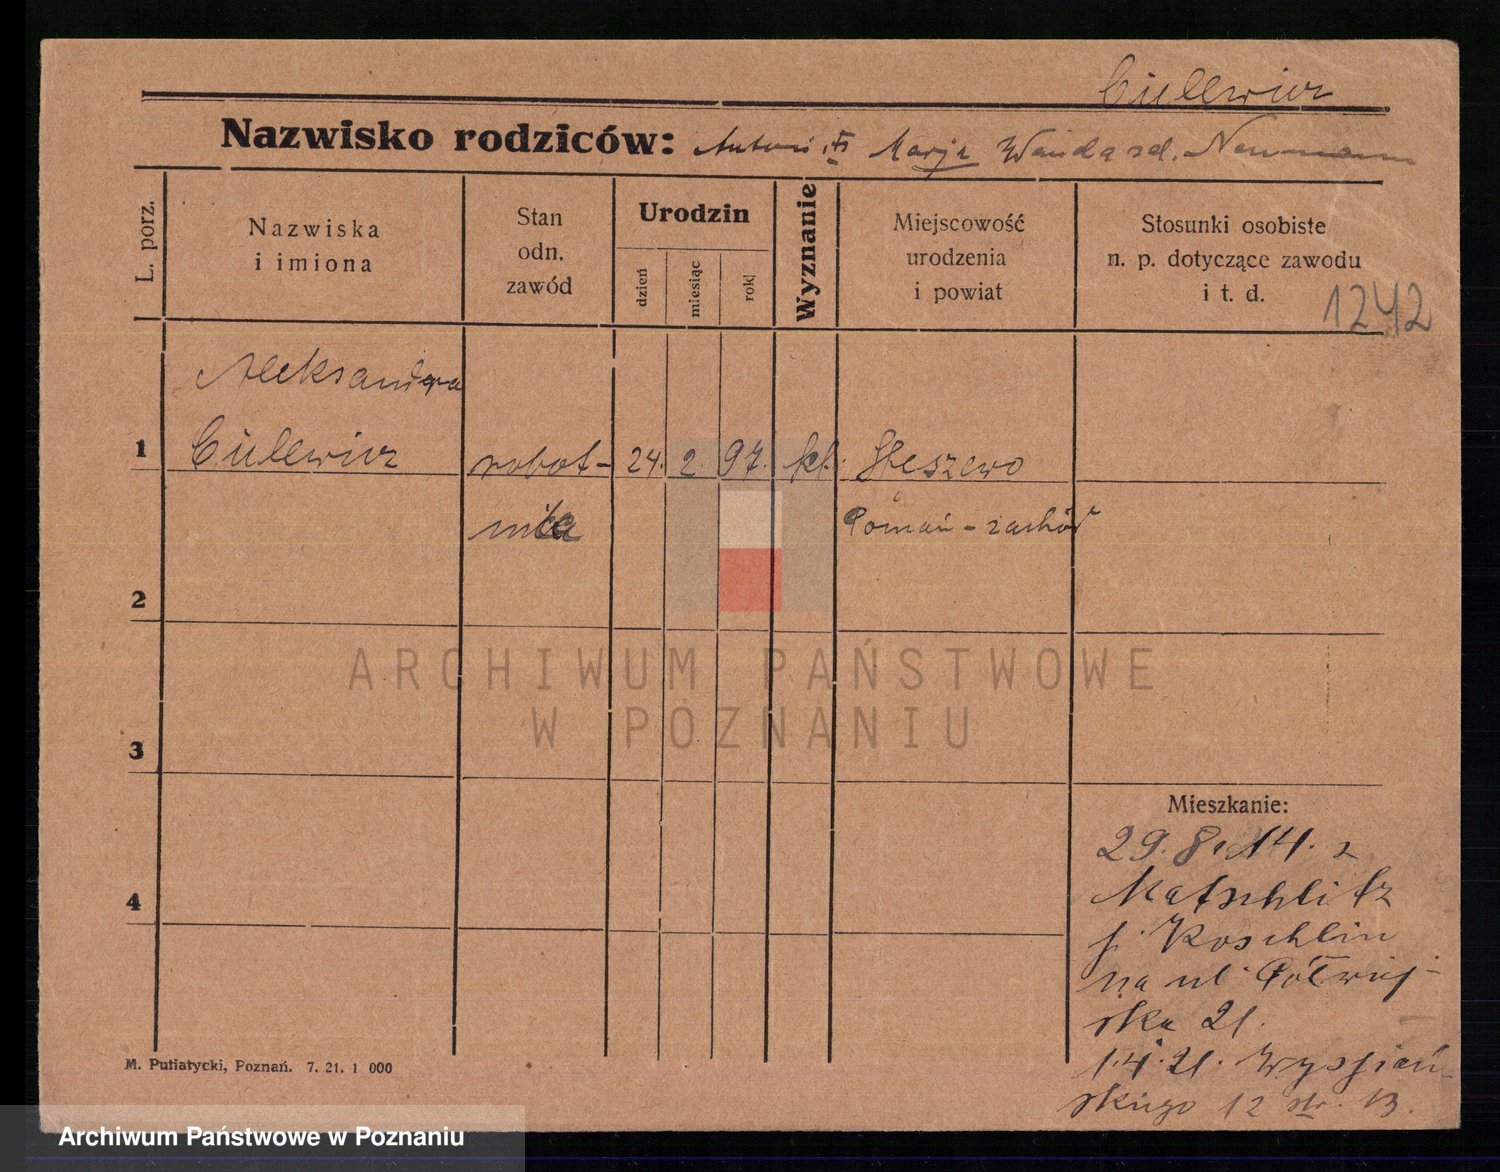 Cielewicz
Nazwisko rodziców: Antoni Marja Wanda
L. porz.
Nazwiska
i imiona
Stan
odn.
zawód
Urodzin
dzień
miesiąc
rok
Wyznanie
Miejscowość
urodzenia
i powiat
Stosunki osobiste
n. p. dotyczące zawodu
i t. d.
1242
Aleksandra
1 Cielewicz robot- 24. 2. 97. kt.
nica
2
3
4
Mieszkanie:
29. 8. 14. z
na ul. Półwiej-
ska 21.
1.4.21. Wyspiań-
skiego 12 13.
M. Putiatycki, Poznań. 7. 21. 1 000
ARCHIWUM PAŃSTWOWE
W POZNANIU
Archiwum Państwowe w Poznaniu